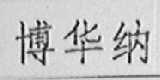 博华纳